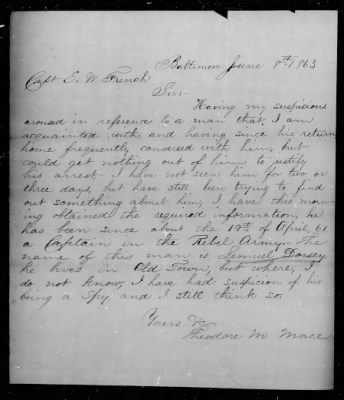 Baltimore June 8th 1863
Capt E. W. French
Sir-
Having my suspicious
aroused in reference to a man that, I am
acquainted with and having since his return
home frequently conversed with him, but
could get nothing out of him to justify
his arrest- I have not seen him for two or
three days, but have still been trying to find
out something about him, I have this mor-
ning obtained the required information, he
has been since about the 19th of April, 61,
a Captain in the Rebel Army- The
name of this man is Lemuel Dorsey
he lives in Old Town, but where, I
do not know, I have had suspicion of his
being a Spy, and I still think so.
Yours
Theodore M. Mace